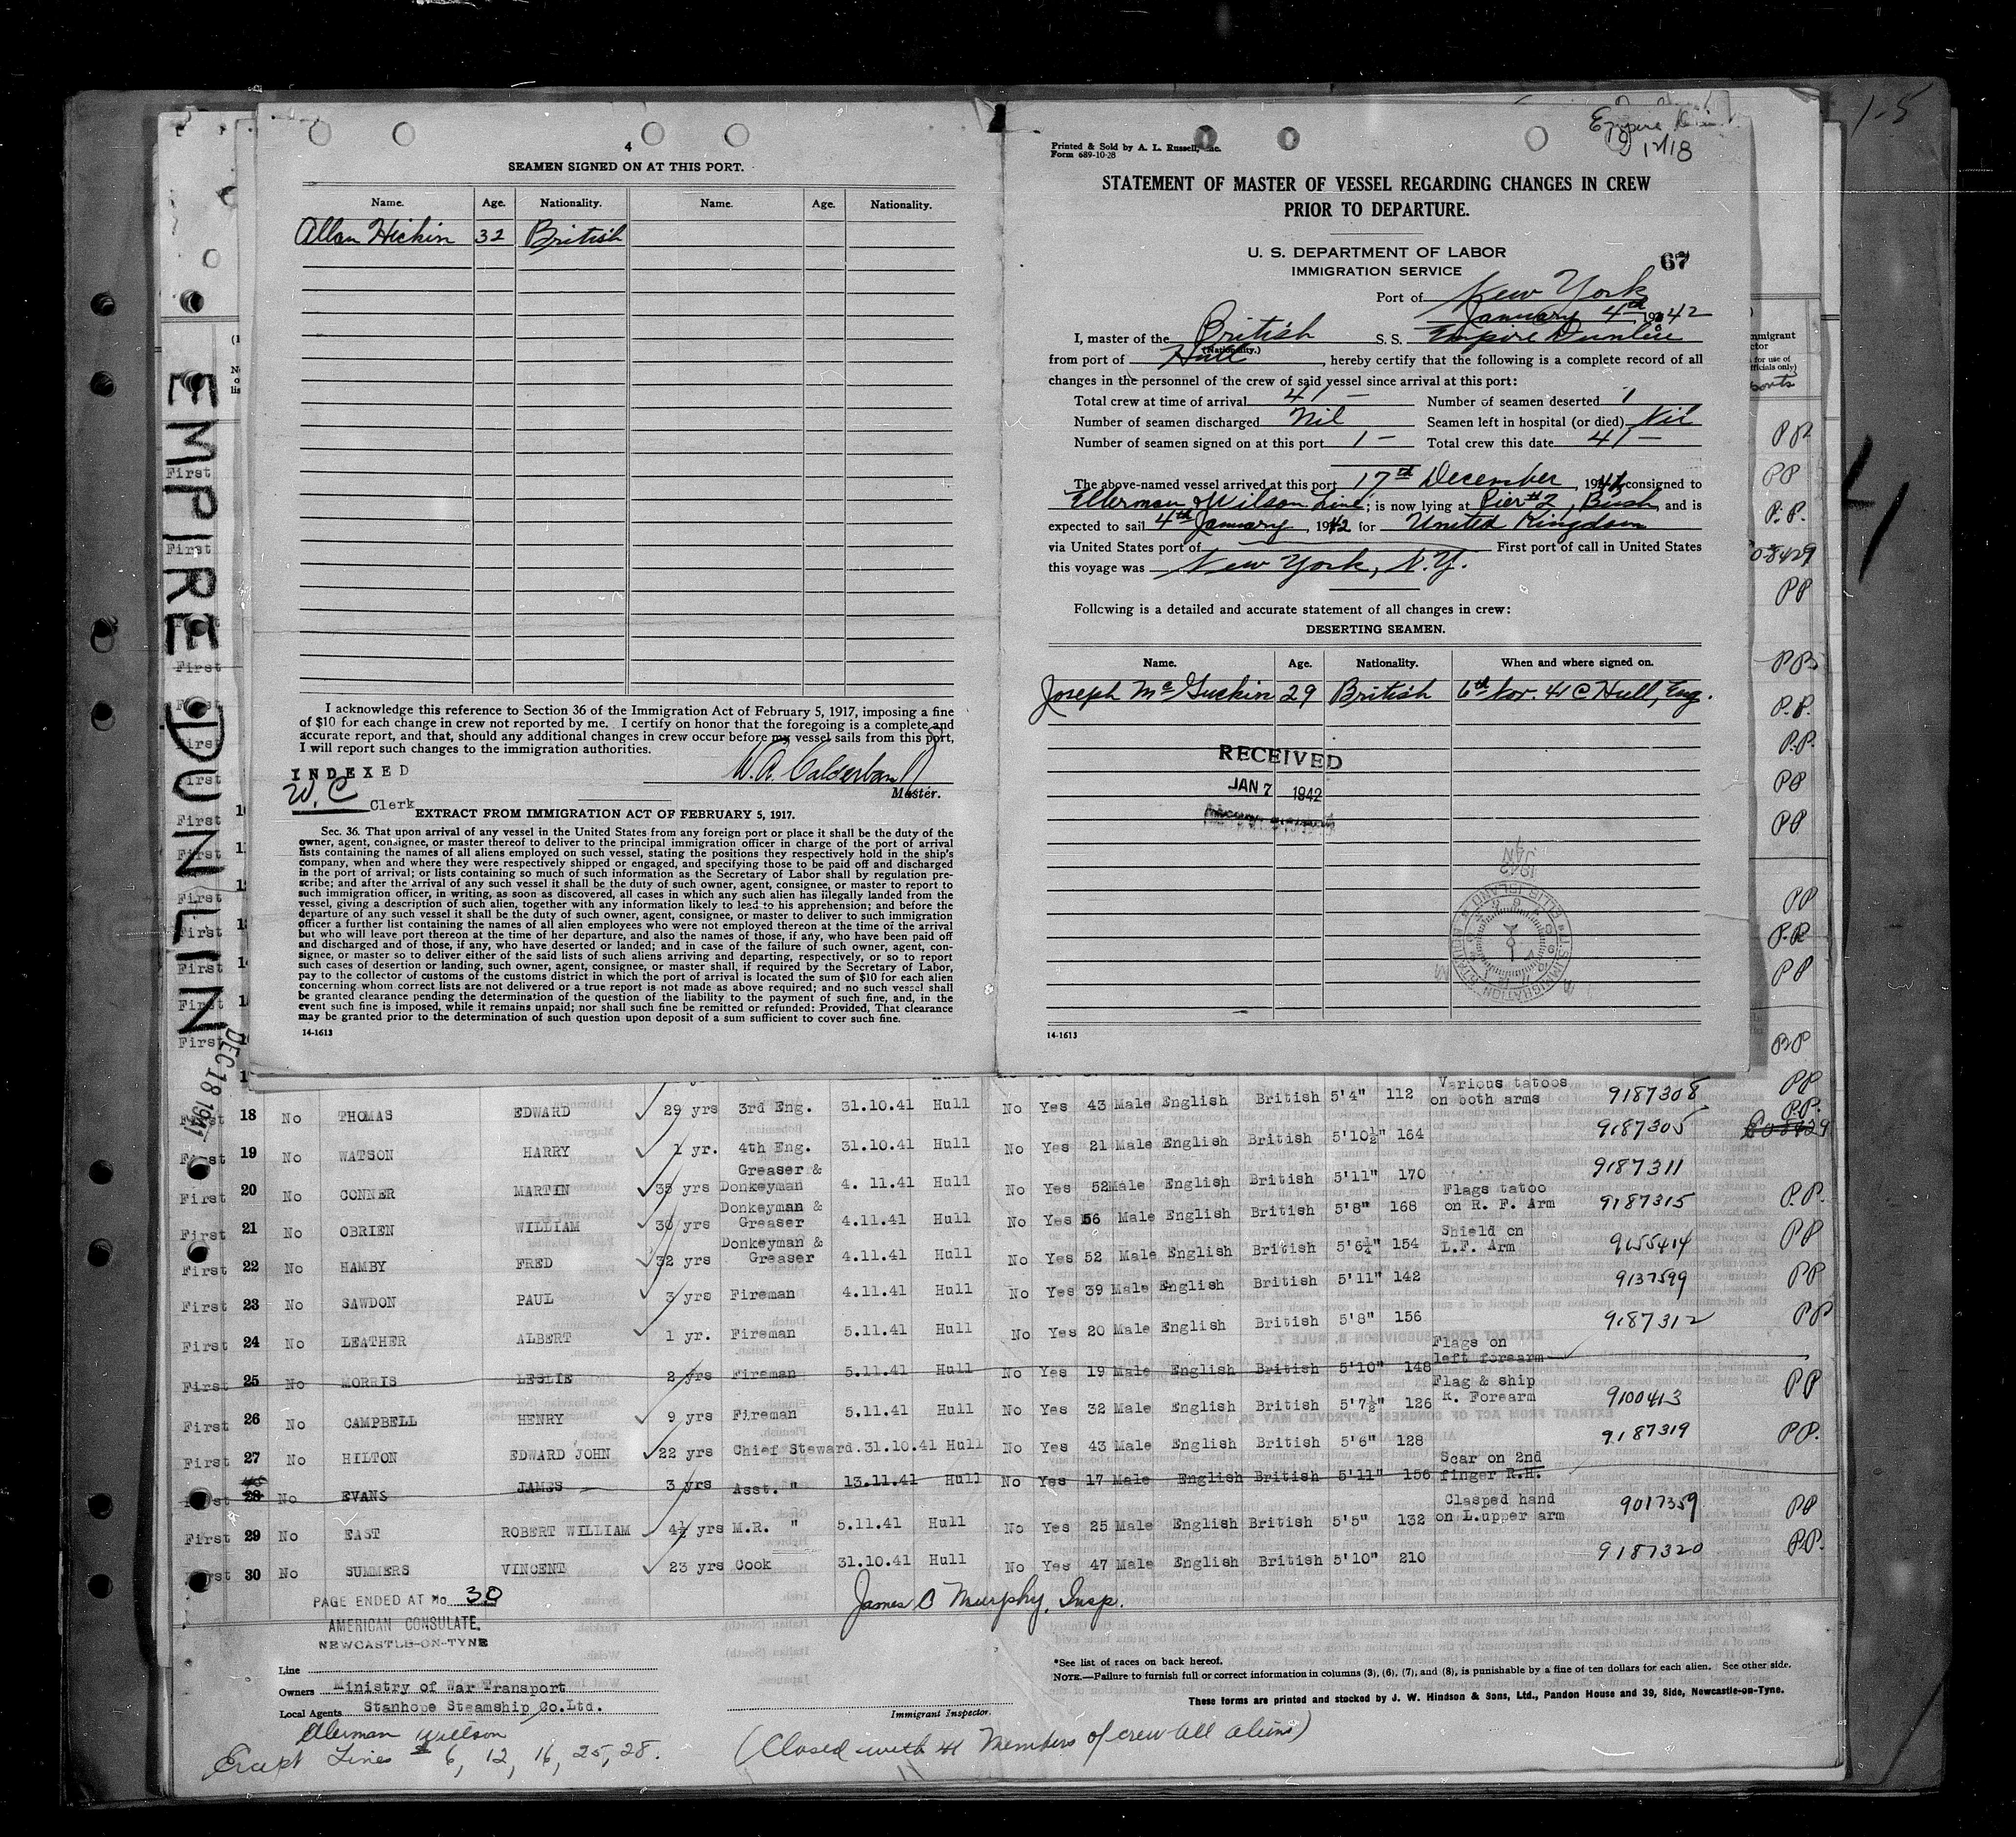 4
SEAMEN SIGNED ON AT THIS PORT.
Name. Age. Nationality. Name. Age. Nationality.
Allan Hickin 32 British
I acknowledge this reference to Section 36 of the Immigration Act of February 5, 1917, imposing a fine
of $10 for each change in crew not reported by me. I certify on honor that the foregoing is a complete and
accurate report, and that, should any additional changes in crew occur before my vessel sails from this port,
I will report such changes to the immigration authorities.
INDEXED
W.C Clerk
W. A. Calderbank
Master.
EXTRACT FROM IMMIGRATION ACT OF FEBRUARY 5, 1917.
Sec. 36. That upon arrival of any vessel in the United States from any foreign port or place it shall be the duty of the
owner, agent, consignee, or master thereof to deliver to the principal immigration officer in charge of the port of arrival
lists containing the names of all aliens employed on such vessel, stating the positions they respectively hold in the ship's
company, when and where they were respectively shipped or engaged, and specifying those to be paid off and discharged
in the port of arrival; or lists containing so much of such information as the Secretary of Labor shall by regulation pre-
scribe; and after the arrival of any such vessel it shall be the duty of such owner, agent, consignee, or master to report to
such immigration officer, in writing, as soon as discovered, all cases in which any such alien has illegally landed from the
vessel, giving a description of such alien, together with any information likely to lead to his apprehension; and before the
departure of any such vessel it shall be the duty of such owner, agent, consignee, or master to deliver to such immigration
officer a further list containing the names of all alien employees who were not employed thereon at the time of the arrival
but who will leave port thereon at the time of her departure, and also the names of those, if any, who have been paid off
and discharged and of those, if any, who have deserted or landed; and in case of the failure of such owner, agent, con-
signee, or master so to deliver either of the said lists of such aliens arriving and departing, respectively, or so to report
such cases of desertion or landing, such owner, agent, consignee, or master shall, if required by the Secretary of Labor,
pay to the collector of customs of the customs district in which the port of arrival is located the sum of $10 for each alien
concerning whom correct lists are not delivered or a true report is not made as above required; and no such vessel shall
be granted clearance pending the determination of the question of the liability to the payment of such fine, and, in the
event such fine is imposed, while it remains unpaid; nor shall such fine be remitted or refunded: Provided, That clearance
may be granted prior to the determination of such question upon deposit of a sum sufficient to cover such fine.
14-1613
Printed & Sold by A. L. Russell, Inc.
Form 689-10-28
Empire
12/18
1-5
STATEMENT OF MASTER OF VESSEL REGARDING CHANGES IN CREW
PRIOR TO DEPARTURE.
U. S. DEPARTMENT OF LABOR
IMMIGRATION SERVICE
67
Port of New York
January 4th 1942
I, master of the British S. S. Empire Dunlin
(Nationality.)
from port of Hull, hereby certify that the following is a complete record of all
changes in the personnel of the crew of said vessel since arrival at this port:
Total crew at time of arrival 41 - Number of seamen deserted 1
Number of seamen discharged Nil Seamen left in hospital (or died) Nil
Number of seamen signed on at this port 1 - Total crew this date 41 -
The above-named vessel arrived at this port 17th December, 1941, consigned to
Ellerman & Wilson Line; is now lying at Pier #2, Bush, and is
expected to sail 4th January, 1942 for United Kingdom
via United States port of First port of call in United States
this voyage was New York, N.Y.
Following is a detailed and accurate statement of all changes in crew:
DESERTING SEAMEN.
Name. Age. Nationality. When and where signed on.
Joseph McGuckin 29 British 6th Nov. 41 @ Hull, Eng.
RECEIVED
JAN 7 1942
14-1613
EMPIRE DUNLIN
DEC 18 1941
Various tatoos
First 18 No THOMAS EDWARD 29 yrs 3rd Eng. 31.10.41 Hull No Yes 43 Male English British 5'4" 112 on both arms 9187308 PP.
First 19 No WATSON HARRY 1 yr. 4th Eng. 31.10.41 Hull No Yes 21 Male English British 5'10½" 164 9187305
Greaser &
First 20 No CONNER MARTIN 35 yrs Donkeyman 4. 11.41 Hull No Yes 52 Male English British 5'11" 170 9187311
Donkeyman & Flags tatoo
First 21 No OBRIEN WILLIAM 30 yrs Greaser 4.11.41 Hull No Yes 56 Male English British 5'8" 168 on R. F. Arm 9187315 P.P.
Donkeyman & Shield on
First 22 No HAMBY FRED 32 yrs Greaser 4.11.41 Hull No Yes 52 Male English British 5'6¼" 154 L.F. Arm 9155414 PP
First 23 No SAWDON PAUL 3 yrs Fireman 4.11.41 Hull No Yes 39 Male English British 5'11" 142 9137599 PP
First 24 No LEATHER ALBERT 1 yr. Fireman 5.11.41 Hull No Yes 20 Male English British 5'8" 156 9187312 PP
Flags on
First 25 No MORRIS LESLIE 2 yrs Fireman 5.11.41 Hull No Yes 19 Male English British 5'10" 148 left forearm
Flag & ship
First 26 No CAMPBELL HENRY 9 yrs Fireman 5.11.41 Hull No Yes 32 Male English British 5'7½" 126 R. Forearm 9100413 PP
First 27 No HILTON EDWARD JOHN 22 yrs Chief Steward. 31.10.41 Hull No Yes 43 Male English British 5'6" 128 9187319 PP.
Scar on 2nd
First 28 No EVANS JAMES 3 yrs Asst. " 13.11.41 Hull No Yes 17 Male English British 5'11" 156 finger R.H.
Clasped hand
First 29 No EAST ROBERT WILLIAM 4½ yrs M.R. " 5.11.41 Hull No Yes 25 Male English British 5'5" 132 on L.upper arm 9017359 PP
First 30 No SUMMERS VINCENT 23 yrs Cook 31.10.41 Hull No Yes 47 Male English British 5'10" 210 9187320 P.P.
PAGE ENDED AT No 30
James C Murphy, Insp.
AMERICAN CONSULATE.
NEWCASTLE-ON-TYNE
Line
Owners Ministry of War Transport
Local Agents Stanhope Steamship Co.Ltd.
Ellerman Willson
Except Lines # 6, 12, 16, 25, 28.
Immigrant Inspector.
(Closed with 41 Members of crew all aliens)
*See list of races on back hereof.
NOTE.—Failure to furnish full or correct information in columns (3), (6), (7), and (8), is punishable by a fine of ten dollars for each alien. See other side.
These forms are printed and stocked by J. W. Hindson & Sons, Ltd., Pandon House and 39, Side, Newcastle-on-Tyne.